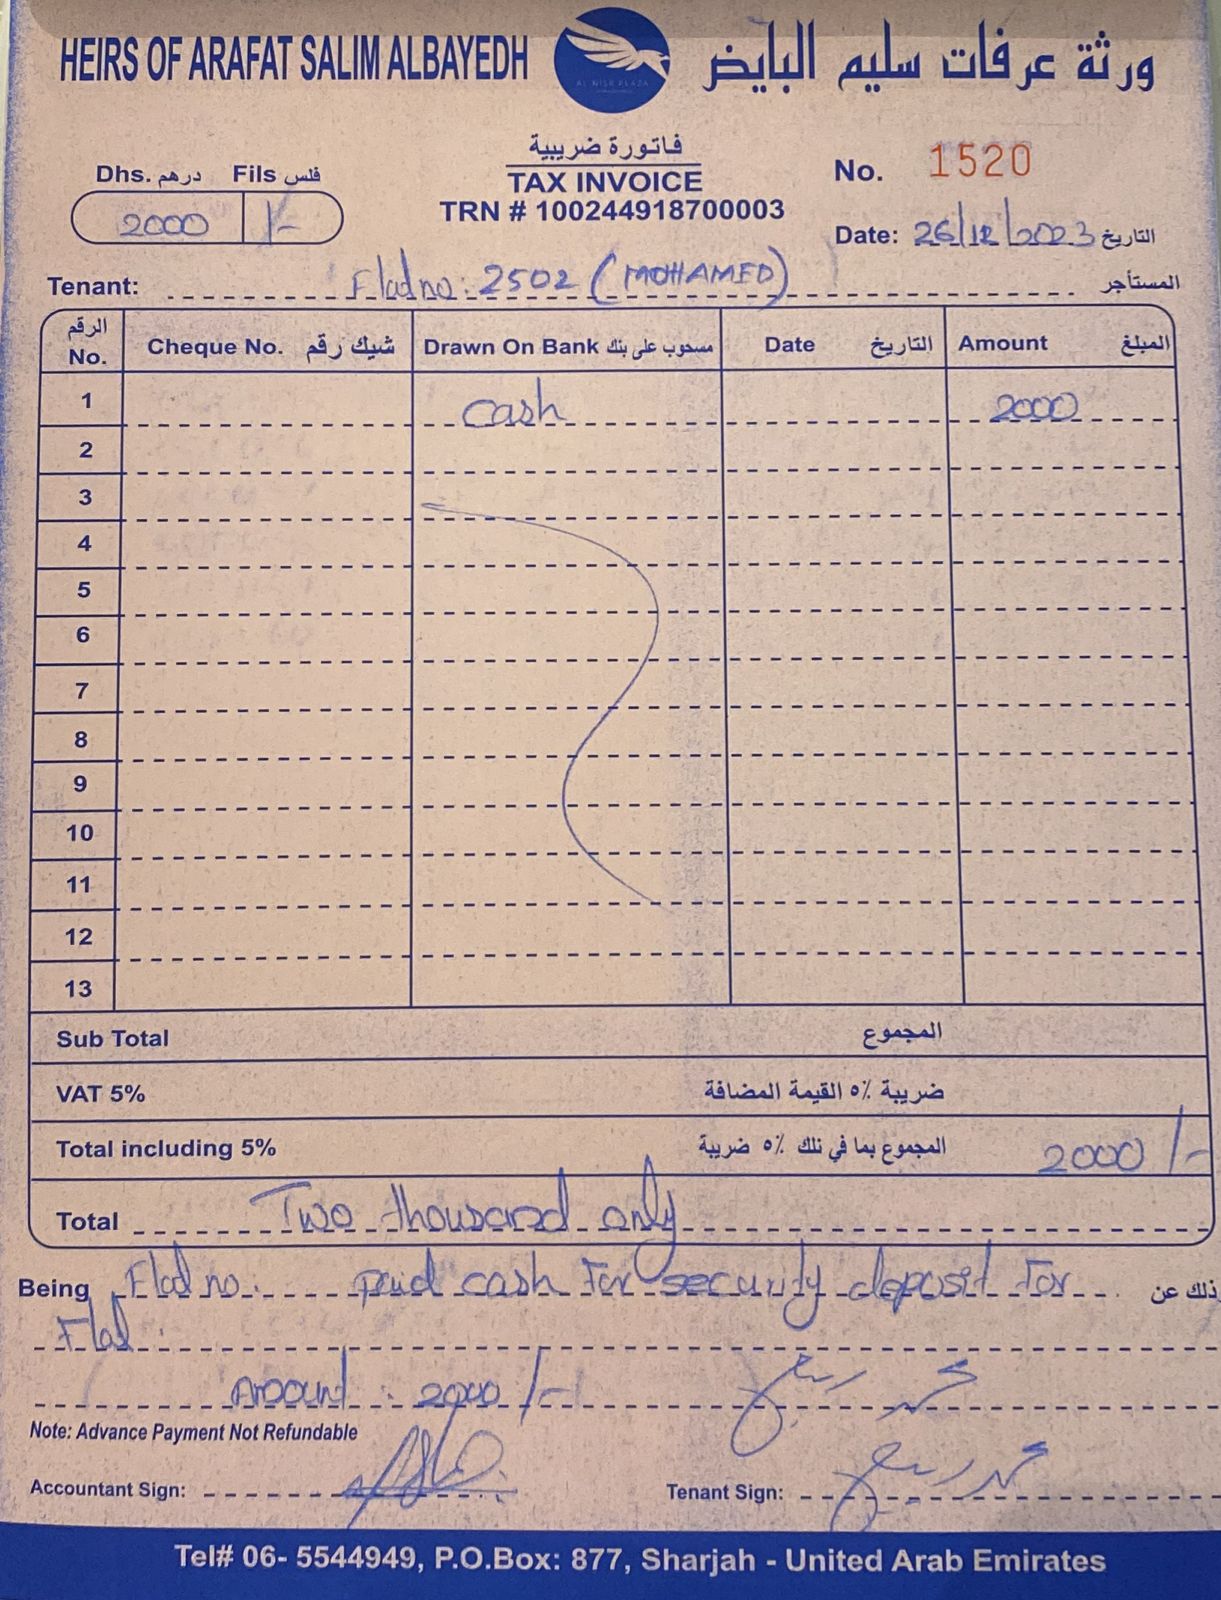 HEIRS OF ARAFAT SALIM ALBAYEDH
AL NISR PLAZA
ورثة عرفات سليم البايض
فاتورة ضريبية
TAX INVOICE
TRN # 100244918700003
Dhs. درهم Fils فلس
2000 /-
No. 1520
Date: 26/12/2023 التاريخ
Tenant: Flat no: 2502 (MOHAMED) المستأجر
الرقم No. Cheque No. شيك رقم Drawn On Bank مسحوب على بنك Date التاريخ Amount المبلغ
1 cash 2000
2
3
4
5
6
7
8
9
10
11
12
13
Sub Total المجموع
VAT 5% ضريبة ٥٪ القيمة المضافة
Total including 5% المجموع بما في ذلك ٥٪ ضريبة 2000 /-
Total Two thousand only
Being Flat no. paid cash For security deposit For ذلك عن
Flat.
Amount : 2000 /-
Note: Advance Payment Not Refundable
Accountant Sign:
Tenant Sign:
Tel# 06- 5544949, P.O.Box: 877, Sharjah - United Arab Emirates